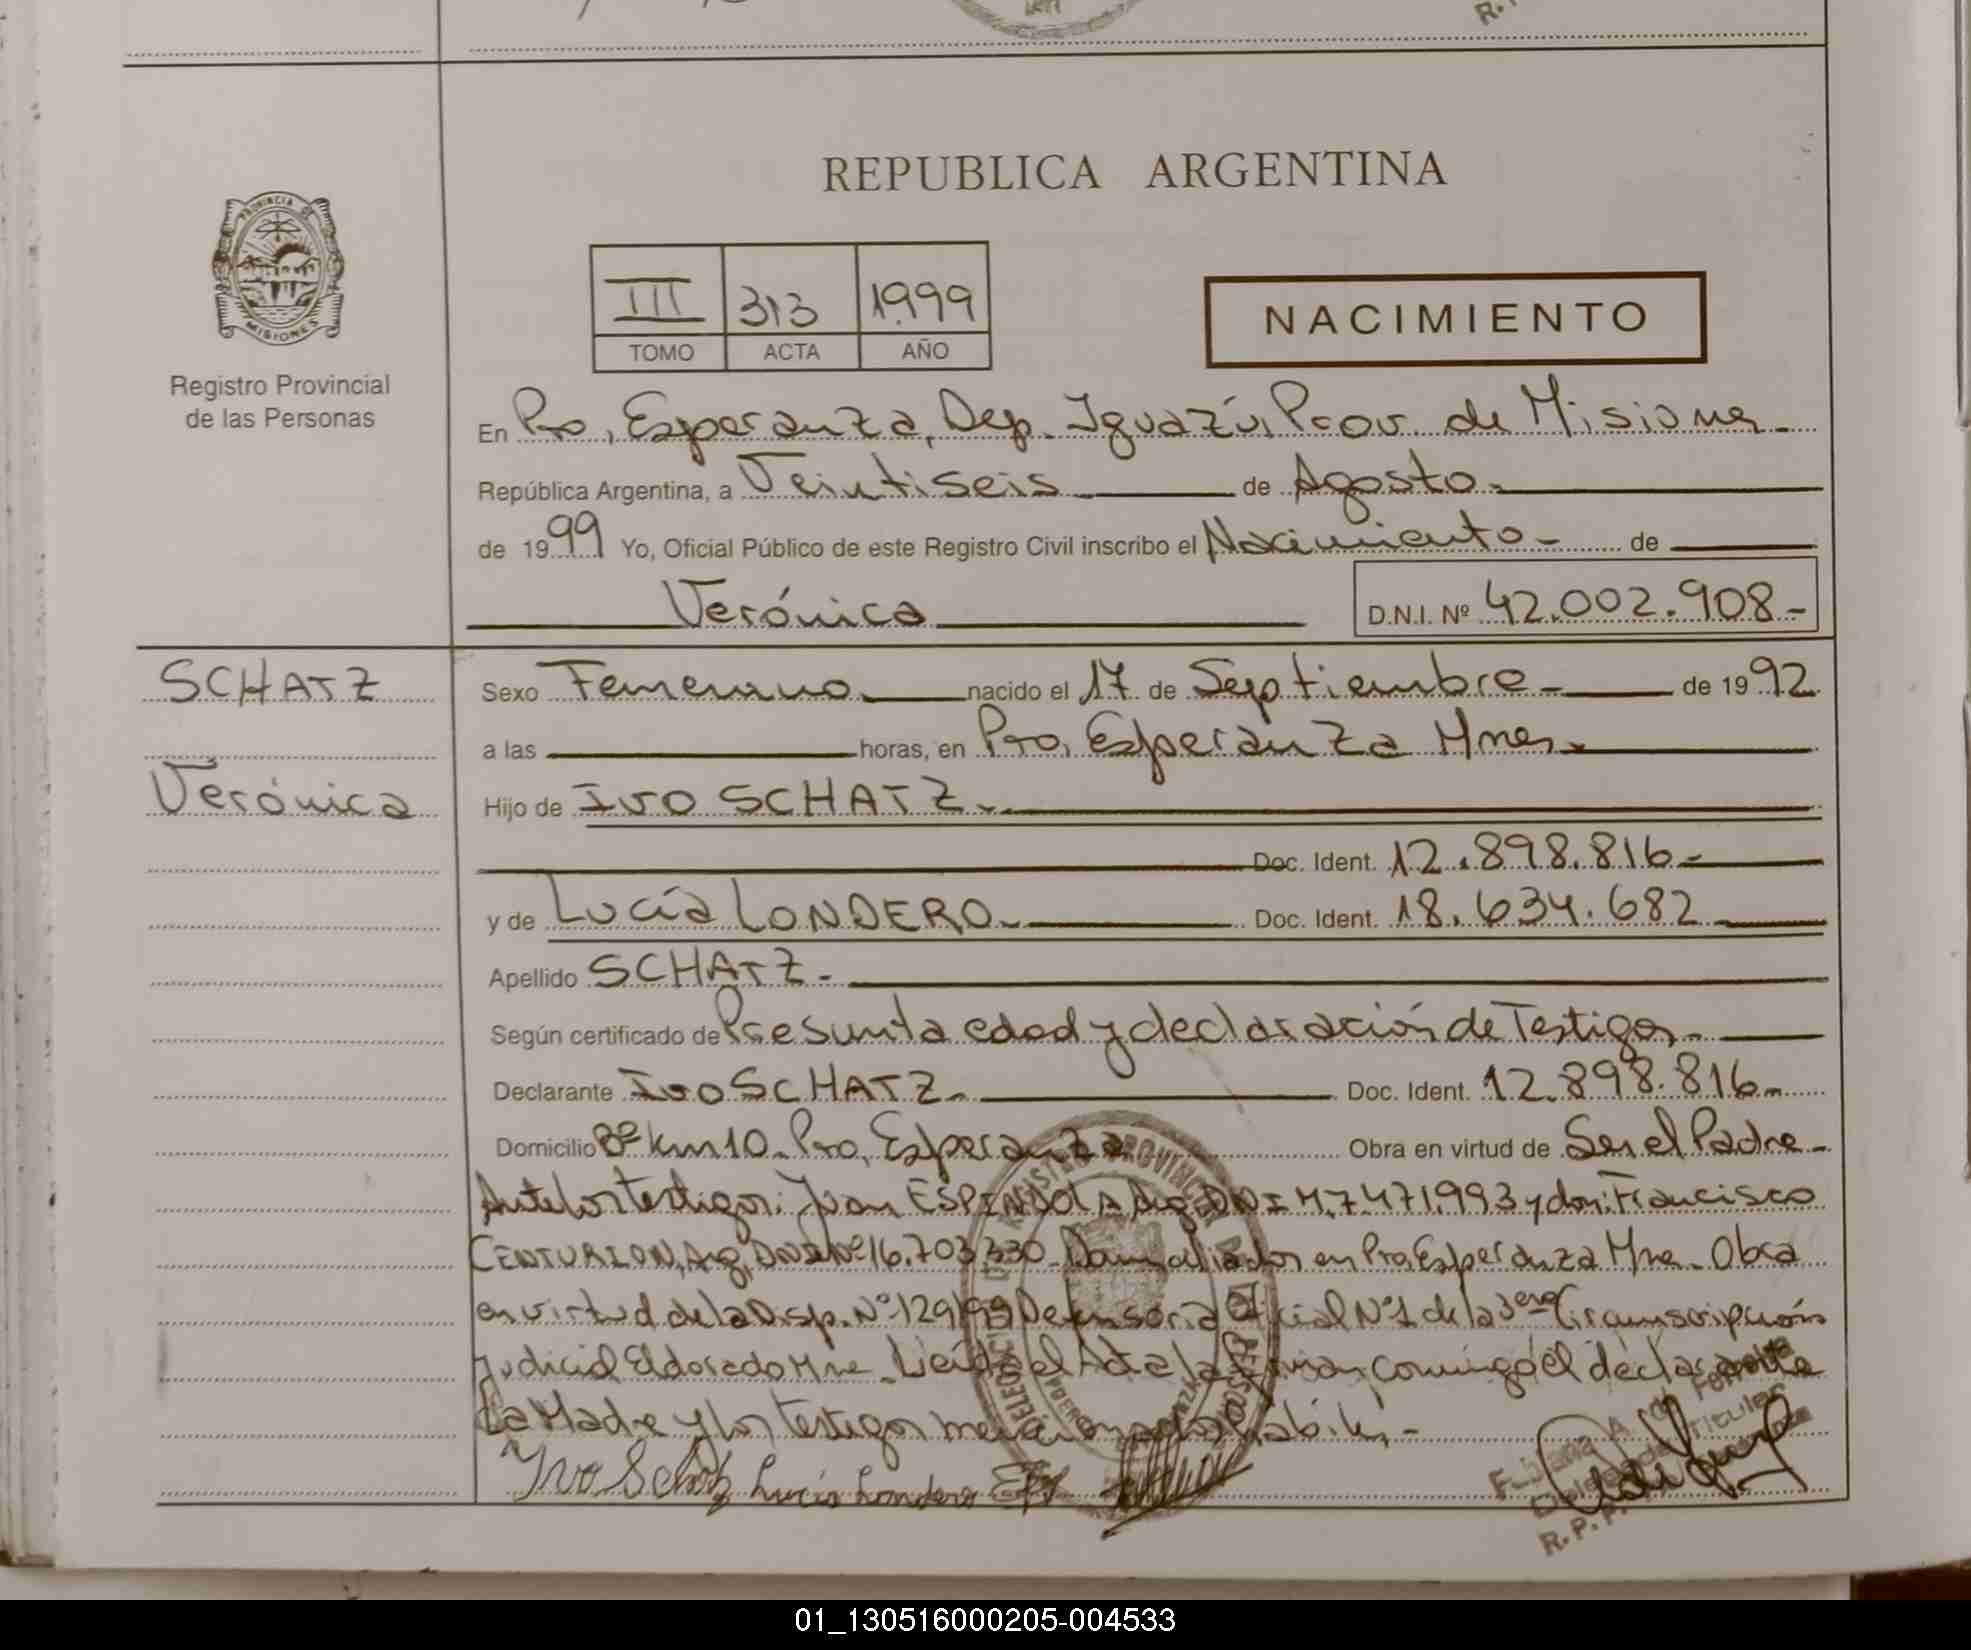 REPUBLICA ARGENTINA
PROVINCIA DE
MISIONES
Registro Provincial
de las Personas
III 313 1.999
TOMO ACTA AÑO
NACIMIENTO
En Pto. Esperanza, Dep. Iguazú, Prov. de Misiones.-
República Argentina, a Veintiseis de Agosto.-
de 1999 Yo, Oficial Público de este Registro Civil inscribo el Nacimiento.- de
Verónica D.N.I. Nº 42.002.908.-
SCHATZ
Verónica
Sexo Femenino nacido el 17 de Septiembre.- de 1992
a las horas, en Pto. Esperanza Mnes.-
Hijo de Ivo SCHATZ.-
Doc. Ident. 12.898.816.-
y de Lucía LONDERO.- Doc. Ident. 18.634.682
Apellido SCHATZ.-
Según certificado de Presunta edad y declaración de Testigos.-
Declarante Ivo SCHATZ.- Doc. Ident. 12.898.816.-
Domicilio Bº km 10. Pto. Esperanza Obra en virtud de Ser el Padre.-
Ante los testigos: Juan ESPINDOLA Arg. DNI M.7.471.993 y don: Francisco
CENTURION, Arg. DNI Nº 16.703.330. Domiciliados en Pto. Esperanza Mnes. Obra
en virtud de la Disp. Nº 129/99 Defensoria Oficial Nº 1 de la 3era Circunscripción
Judicial Eldorado Mnes. Leída el Acta la firman conmigo el declarante
La Madre y los testigos mencionados hábiles.-
Ivo Schatz Lucía Londero
Titular
R.P.P.
01_130516000205-004533